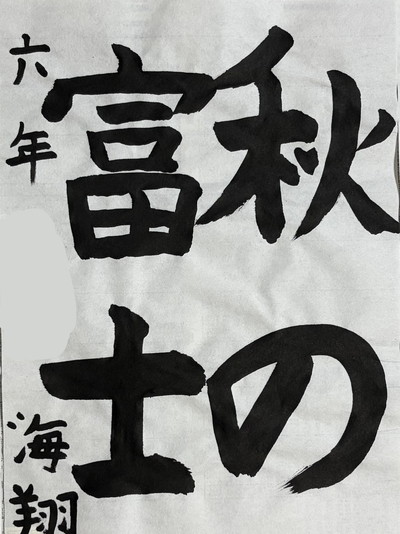 秋の
富士
六年
海翔